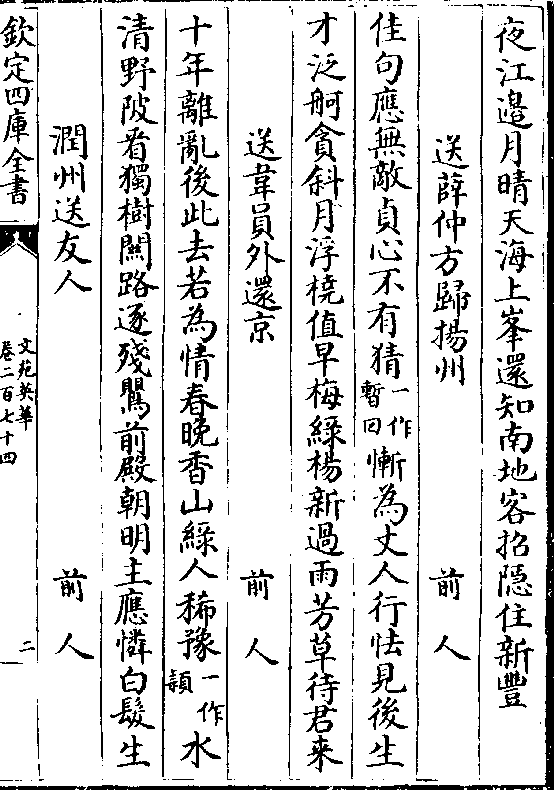 夜江邉月晴天海上峯還知南地客招隠住新豐
送薛仲方歸揚州 前人
佳句應無敵貞心不有猜一作暫回慚為丈人行怯見後生
才泛舸貪斜月浮橈值早梅綠楊新過雨芳草待君來
送韋員外還京 前人
十年離亂後此去若為情春晚香山綠人稀豫一作潁水
清野陂看獨樹關路逐殘鶯前殿朝明主應憐白髮生
潤州送友人 前人
欽定四庫全書
文苑英華
卷二百七十四
二